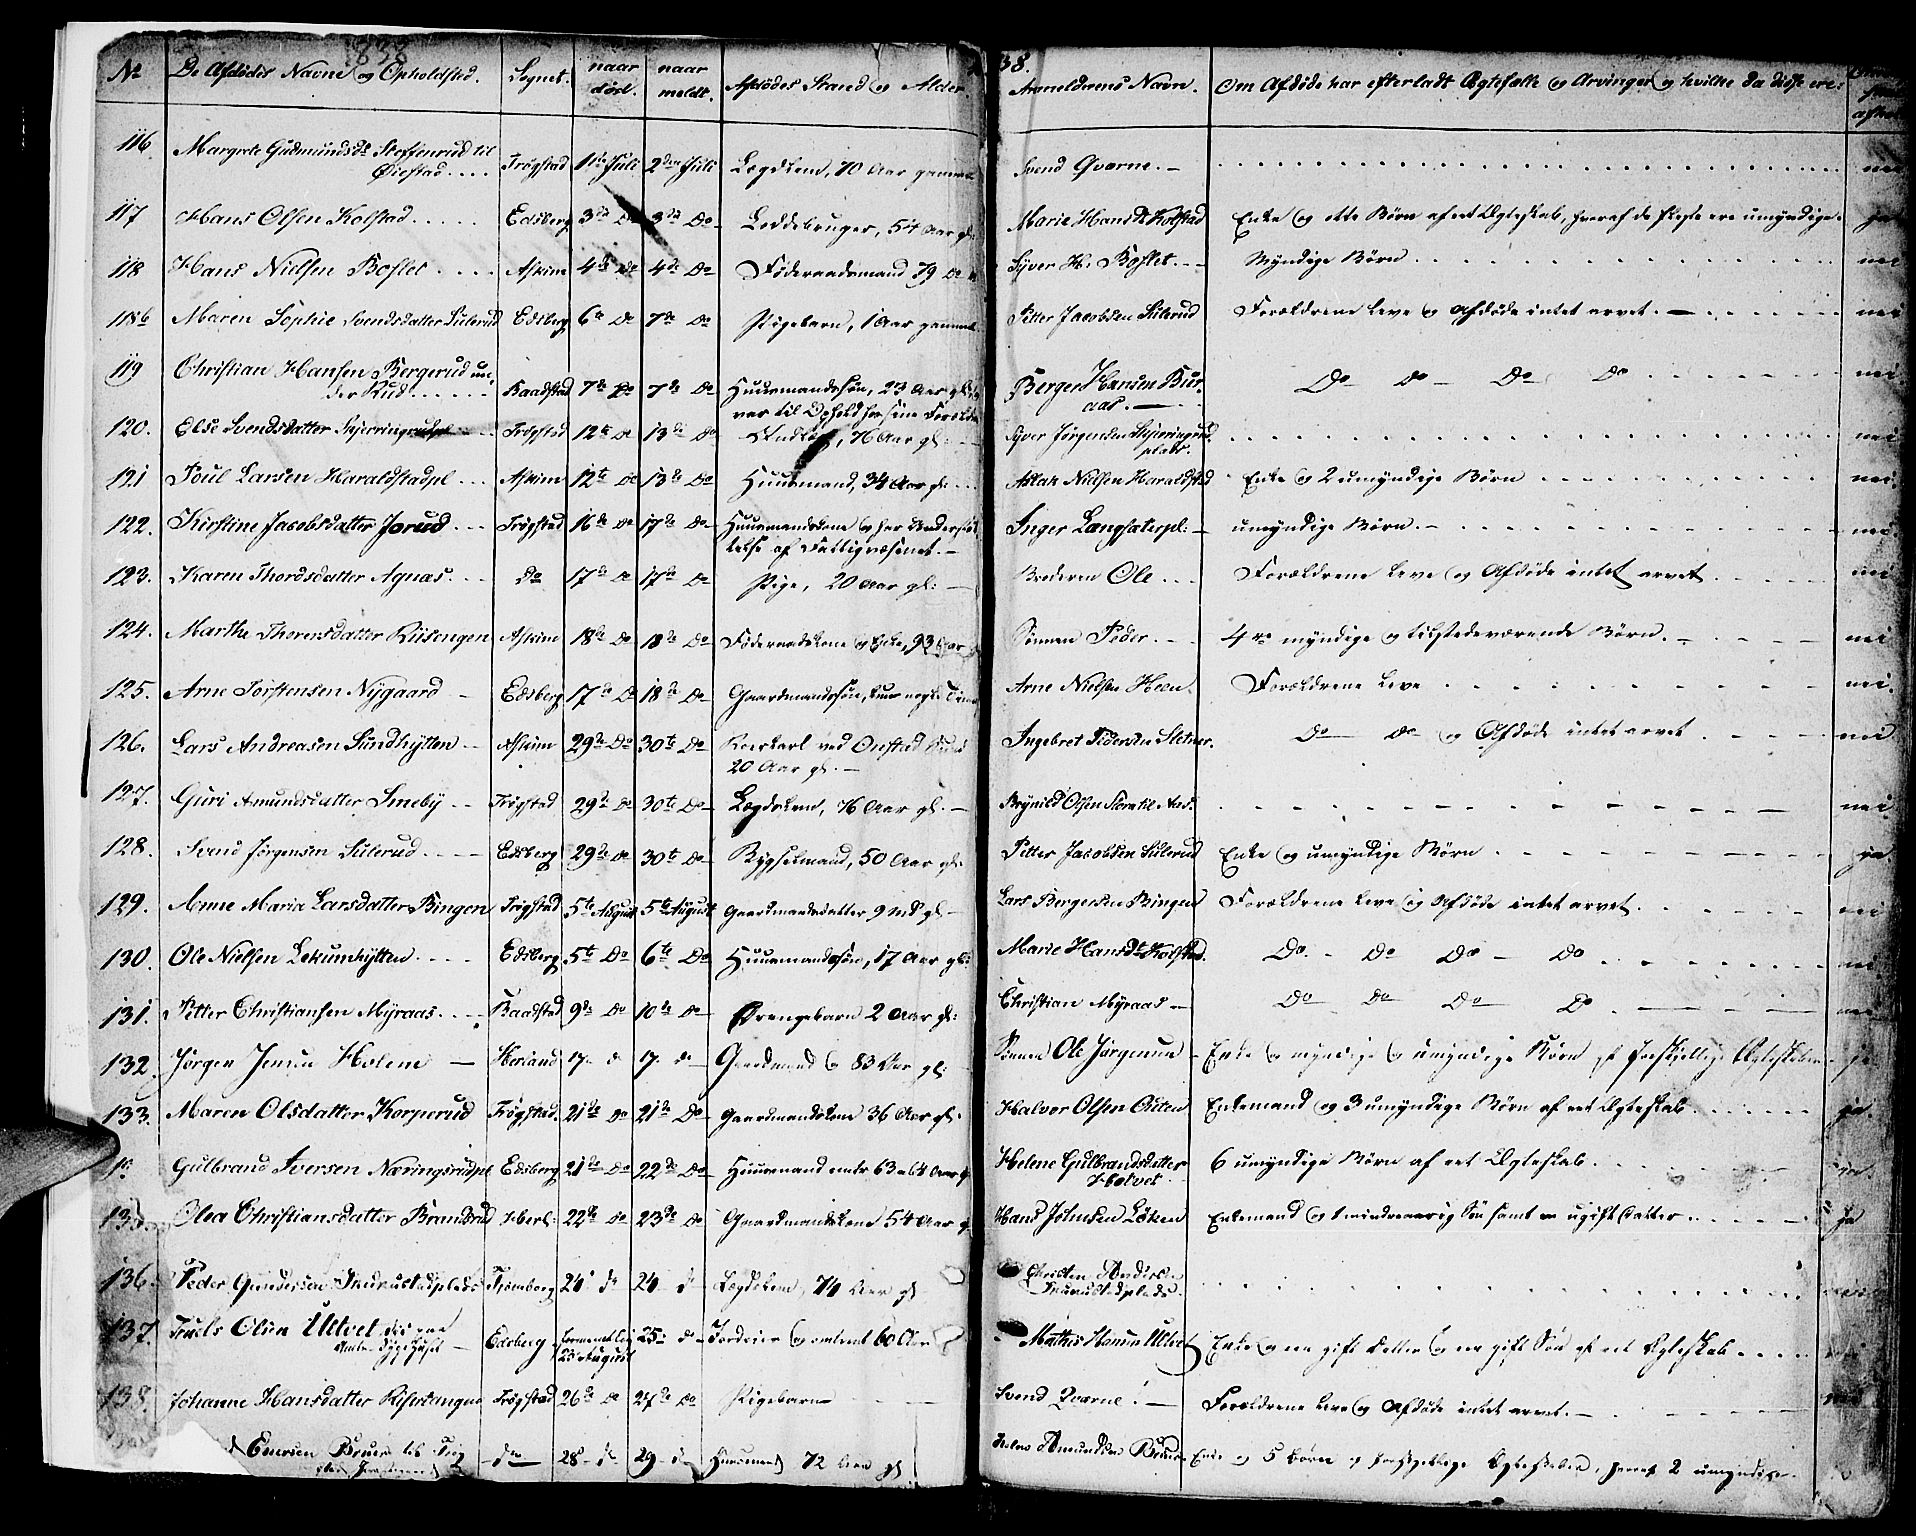 1838
38.
No De Afdødes Navne og Opholdsted. Sognet. naar død. naar meldt. Afdødes Stand og Alder Anmelderens Navn. Om Afdøde har efterladt Ægtefælle og Arvinger og hvilke da disse ere:
116. Margrete Gudmundsdr Steffenrud til Øiestad.... Trøgstad 1ste Juli 2den Juli Lægdslem, 70 Aar gammel Svend Qværne.— nei
117 Hans Olsen Kolstad..... Edsberg 3die Do 3die Do Leddebruger, 54 Aar gl: Marie Hansdr Kolstad Enke og otte Børn af eet Ægteskab, hvoraf de fleste ere umyndige. ja
118 Hans Nielsen Boslet.... Askim 4de Do 4de Do Føderaadsmand 79 Do Syver H: Boslet.-- Myndige Børn nei
118b Maren Sophie Svendsdatter Sulerud Edsberg 6te Do 7de Do Pigebarn, 1 Aar gammel Petter Jacobsen Sulerud Forældrene leve og Afdøde intet arvet.— nei
119 Christian Hansen Bergerud under Rud...... Baadstad 7de Do 7de Do Huusmandssøn, 23 Aar gl: var til Ophold hos sine Forældre Berger Hansen Buraas.— Do Do Do Do nei
120. Else Svendsdatter Skjerringrudpl Trøgstad 12te Do 13de Do 76 Aar gl:— Syver Jørgensen Skjerringrudplads. nei
121 Poul Larsen Haraldstadpl... Askim 12te Do 13de Do Huusmand, 34 Aar gl:... Aslak Nielsen Haraldstad Enke og 2 umyndige Børn nei
122. Kirstine Jacobsdatter Jorud... Trøgstad 16de Do 17de Do Huusmandskone og har Understøttelse af Fattigvæsenet.— Inger Langsæterpl:— umyndige Børn.— nei
123. Karen Thordsdatter Agnæs... Do 17de Do 17de Do Pige, 20 Aar gl:— Broderen Ole... Forældrene leve og Afdøde intet arvet nei
124. Marthe Thorersdatter Riisengen Askim 18de Do 18de Do Føderaadskone og Enke, 93 Aar Sønnen Peder... 4re myndige og tilstedeværende Børn. nei
125. Arne Torstensen Nygaard — Edsberg 17de Do 18de Do Gaardmandssøn, kun nogle Timer Arne Nielsen Heen. Forældrene leve nei
126. Lars Andreasen Sundhytten — Askim 29de Do 30te Do ved Onstad Sund 20 Aar gl.— Ingebret Pedersen Sletner. Do Do og Afdøde intet arvet nei
127. Guri Amundsdatter Smeby -- Trøgstad 29de Do 30te Do Lægdslem, 76 Aar gl.— Brynild Olsen nei
128. Svend Jørgensen Sulerud.... Edsberg 29de Do 30te Do 50 Aar gl: Petter Jacobsen Sulerud Enke og umyndige Børn ja
129. Anne Maria Larsdatter Bingen Trøgstad 5te August 5te August Gaardmandsdatter 9 Md gl.— Lars Bergersen Bingen Forældrene leve og Afdøde intet arvet. nei
130. Ole Nielsen Lekumhytten.... Edsberg 5te Do 6te Do Huusmandssøn, 17 Aar gl: Marie Hansdr Kolstad. Do. Do Do Do nei
131. Petter Christiansen Myraas.... Baadstad 9de Do 10de Do Drengebarn 2 Aar gl: Christian Myraas — Do Do Do Do nei
132. Jørgen Jensen Holene — Herland 17. d 17. d Gaardmand og 83 Aar gl: Sønnen Ole Jørgensen Enke og myndige og umyndige Børn af forskjellige Ægteskaber ja
133. Maren Olsdatter Korperud Trøgstad 21de Do 21de Do Gaardmandskone 36 Aar gl: Halvor Olsen Enkemand og 3 umyndige Børn af eet Ægteskab ja
Gulbrand Iversen Næringsrudpl Edsberg 21de Do 22de Do Huusmand 63 a 64 Aar Helene Gulbrandsdatter Holvet 6 umyndige Børn af eet Ægteskab ja
135. Olea Christiansdatter Brandsrud Herl: 22de Do 23de Do Gaardmandskone 54 Aar Hans Johnsen Løken Enkemand og 1 mindreaarig Søn samt en ugift Datter ja
136. Peder Gundersen Trømborg 24 d 24 d Lægdslem, 74 Aar gl Christen nei
137 Truels Olsen Ultvet Edsberg 23 August 25 d Inderst og omtrent 60 Aar Mathis Hansen Ultvet Enke og en gift Datter og en gift Søn af eet Ægteskab nei
138. Johanne Hansdatter Trøgstad 26de Do 27de Do Pigebarn Svend Qværne.— Forældrene leve og Afdøde intet arvet.— nei
Enersen Bruer do 28 d 29 d Huusmand 72 Aar gl Amundsen Bruer Enke og 5 Børn af forskjellige Ægteskaber, hvoraf 2 umyndige.